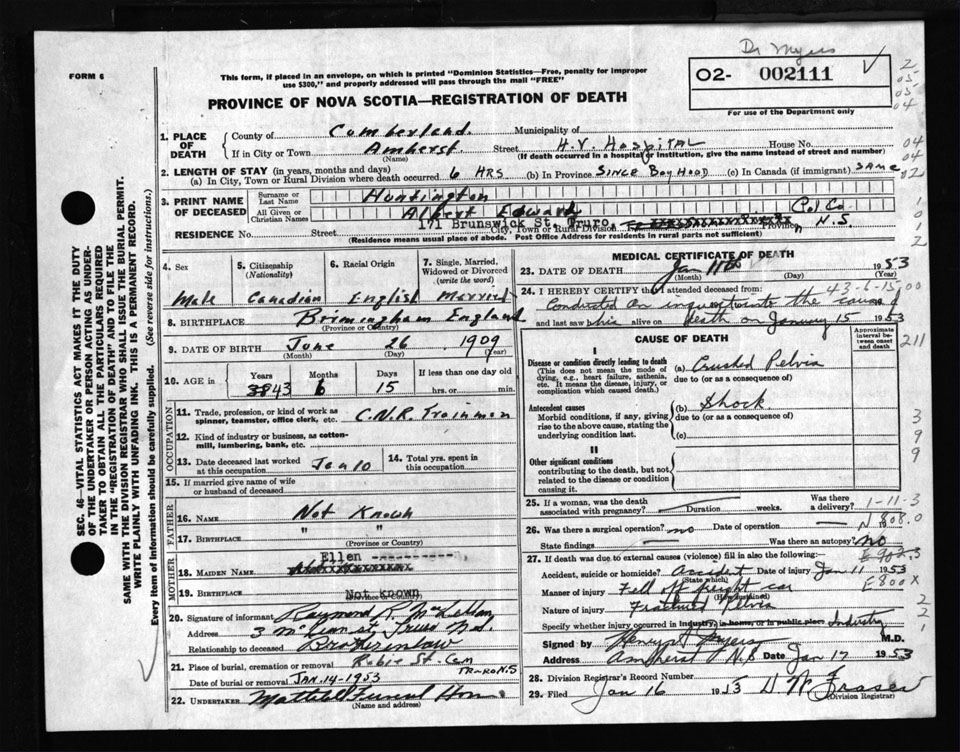 Dr Myers
FORM 6
This form, if placed in an envelope, on which is printed "Dominion Statistics—Free, penalty for improper
use $300," and properly addressed will pass through the mail "FREE"
O2- 002111
2
05
05
04
For use of the Department only
PROVINCE OF NOVA SCOTIA—REGISTRATION OF DEATH
1. PLACE OF DEATH
County of Cumberland. Municipality of
If in City or Town Amherst. Street H.V. Hospital House No. 04
(Name) (If death occurred in a hospital or institution, give the name instead of street and number) 04
2. LENGTH OF STAY (in years, months and days)
(a) In City, Town or Rural Division where death occurred 6 HRS (b) In Province SINCE BOYHOOD (c) In Canada (if immigrant) SAME
02
3. PRINT NAME OF DECEASED
Surname or Last Name Huntington
All Given or Christian Names Albert Edward Col Co
RESIDENCE No. Street 171 Brunswick St. Truro City, Town or Rural Division Province N.S.
(Residence means usual place of abode. Post Office Address for residents in rural parts not sufficient)
4. Sex
Male
5. Citizenship
(Nationality)
Canadian
6. Racial Origin
English
7. Single, Married, Widowed or Divorced
(write the word)
Married
8. BIRTHPLACE Birmingham England
(Province or Country)
9. DATE OF BIRTH June 26 1909
(Month) (Day) (Year)
10. AGE in Years Months Days If less than one day old
43 6 15 hrs. or min.
OCCUPATION
11. Trade, profession, or kind of work as
spinner, teamster, office clerk, etc. C.N.R. Trainman
12. Kind of industry or business, as cotton-
mill, lumbering, bank, etc.
13. Date deceased last worked
at this occupation Jan 10
14. Total yrs. spent in
this occupation
15. If married give name of wife
or husband of deceased
FATHER
16. NAME Not Known
17. BIRTHPLACE " "
(Province or Country)
MOTHER
18. MAIDEN NAME Ellen ----------
19. BIRTHPLACE Not known
(Province or Country)
20. Signature of informant Raymond R. McLellan
Address 3 McLean St, Truro N.S.
Relationship to deceased Brotherinlaw
21. Place of burial, cremation or removal Robie St. Cem
TRURO N.S
Date of burial or removal JAN. 14-1953
22. UNDERTAKER Mattatall Funeral Home
(Name and address)
MEDICAL CERTIFICATE OF DEATH
23. DATE OF DEATH Jan 11th 1953
(Month) (Day) (Year)
24. I HEREBY CERTIFY that I attended deceased from: 43-6-15-00
Conducted an inquest into the cause of
and last saw his alive on death on January 15 1953
CAUSE OF DEATH
Approximate interval between onset and death
211
I
Disease or condition directly leading to death
(This does not mean the mode of
dying, e.g., heart failure, asthenia,
etc. It means the disease, injury, or
complication which caused death.)
(a) Crushed Pelvis
due to (or as a consequence of)
Antecedent causes
Morbid conditions, if any, giving
rise to the above cause, stating the
underlying condition last.
(b) Shock
due to (or as a consequence of)
(c)
3
9
9
II
Other significant conditions
contributing to the death, but not
related to the disease or condition
causing it.
25. If a woman, was the death
associated with pregnancy? Duration weeks. Was there
a delivery? 1-11-3
26. Was there a surgical operation? no Date of operation N 808.0
State findings Was there an autopsy? no
27. If death was due to external causes (violence) fill in also the following: E902.3
Accident, suicide or homicide? Accident Date of injury Jan 11 1953
(State which)
Manner of injury Fell off freight car E800X
(How sustained)
Nature of injury Fractured Pelvis 2
2
Specify whether injury occurred in industry, in home, or in public place Industry 1
Signed by Henry A Myers M.D.
Address Amherst N.S. Date Jan 17 1953
28. Division Registrar's Record Number
29. Filed Jan 16 1953 D M Fraser
(Division Registrar)
1
0
1
2
SEC. 46—VITAL STATISTICS ACT MAKES IT THE DUTY
OF THE UNDERTAKER OR PERSON ACTING AS UNDER-
TAKER TO OBTAIN ALL THE PARTICULARS REQUIRED
IN THE "REGISTRATION OF DEATH" AND TO FILE THE
SAME WITH THE DIVISION REGISTRAR WHO SHALL ISSUE THE BURIAL PERMIT.
WRITE PLAINLY WITH UNFADING INK. THIS IS A PERMANENT RECORD.
Every item of information should be carefully supplied. (See reverse side for instructions.)